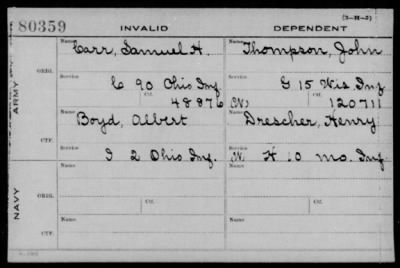 (3-H-3)
80359 INVALID DEPENDENT
Name Carr, Samuel H. Name Thompson, John
ORIG.
Service C 90 Ohio Inf Service G 15 Wis. Inf
Ctf. 48876 (N) Ctf. 120711
ARMY
Name Boyd, Albert Name Drescher, Henry
CTF.
Service I 2 Ohio Inf. Service (N) H 10 Mo. Inf
Name Name
ORIG.
Ctf. Ctf.
NAVY
Name Name
CTF.